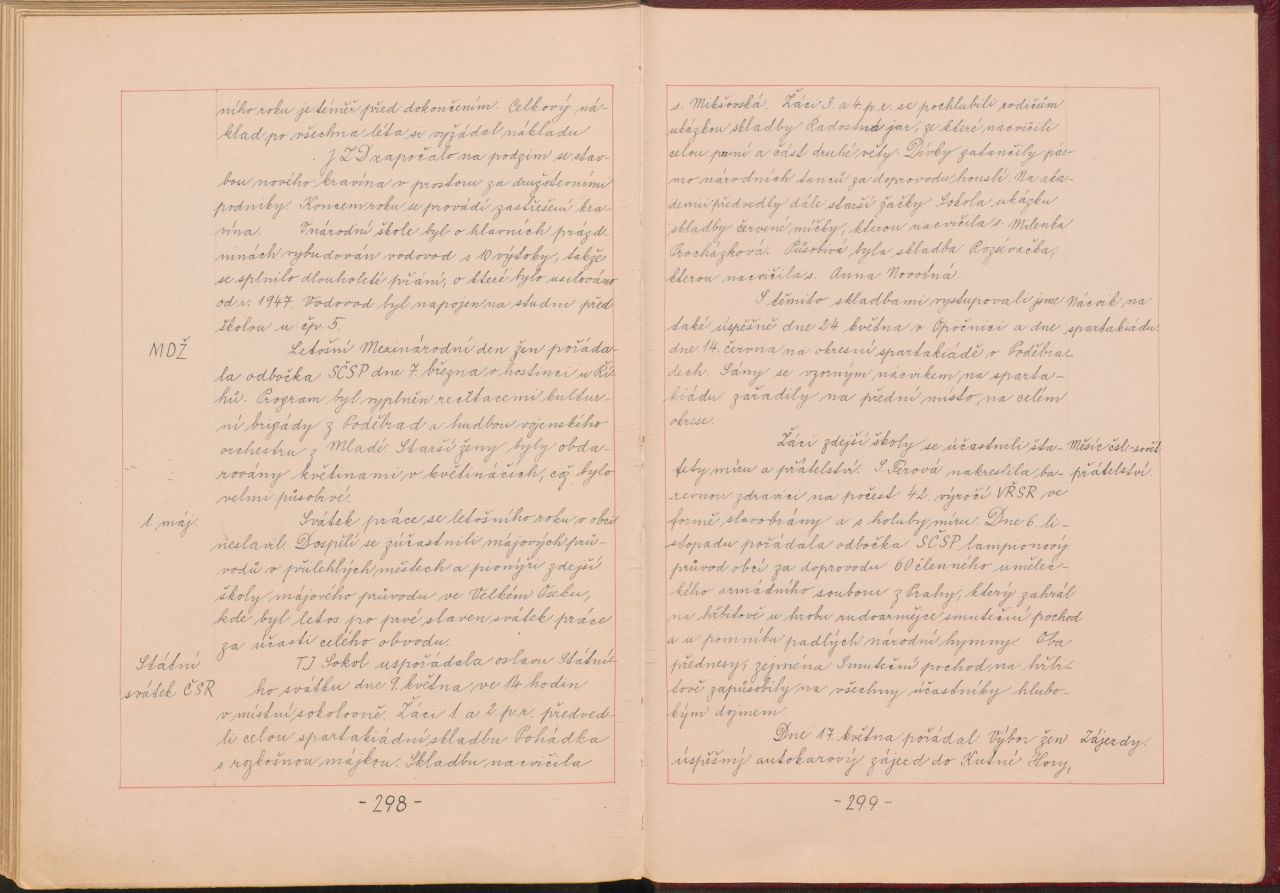 ního roku je téměř před dokončením. Celkový ná-
klad po všechna léta si vyžádal nákladu
JZD započalo na podzim se stav-
bou nového kravína v prostoru za družstevními
podniky. Koncem roku se provádí zastřešení kra-
vína. V národní škole byl o hlavních prázd-
ninách vybudován vodovod s 10 výtoky, takže
se splnilo dlouholeté přání, o které bylo usilováno
od r. 1947. Vodovod byl napojen na studni před
školou u čp. 5.
MDŽ
Letošní Mezinárodní den žen pořáda-
la odbočka SČSP dne 7. března v hostinci u Ří-
hů. Program byl vyplněn recitacemi kultur-
ní brigády z Poděbrad a hudbou vojenského
orchestru z Mladé. Starší ženy byly obda-
rovány květinami v květináčích, což bylo
velmi působivé.
1. máj.
Svátek práce se letošního roku v obci
neslavil. Dospělí se zúčastnili májových prů-
vodů v přilehlých městech a pionýři zdejší
školy májového průvodu ve Velkém Oseku,
kde byl letos po prvé slaven svátek práce
za účasti celého obvodu.
Státní
svátek ČSR
TJ Sokol uspořádala oslavu Státní-
ho svátku dne 9. května ve 14 hodin
v místní sokolovně. Žáci 1. a 2. p.r. předved-
li celou spartakiádní skladbu Pohádka
s rozkošnou májkou. Skladbu nacvičila
- 298 -
s. Mikšovská. Žáci 3. a 4. p.r. se pochlubili rodičům
ukázkou skladby Radostná jar, ze které nacvičili
celou první a část druhé věty. Dívky zatančily pás-
mo národních tanců za doprovodu houslí. Na aka-
demii předvedly dále starší žačky Sokola ukázku
skladby červené míčky, kterou nacvičila s. Milenka
Procházková. Působivá byla skladba Rozsévačka,
kterou nacvičila s. Anna Novotná.
S těmito skladbami vystupovali jsme
Nácvik na
také úspěšně dne 24. května v Opočnici a dne
spartakiádu.
dne 14. června na okresní spartakiádě v Poděbra-
dech. Sány se vzorným nácvikem na sparta-
kiádu zařadily na přední místo na celém
okrese.
Žáci zdejší školy se účastnili šta-
Měsíc čsl-sovět
fety míru a přátelství. S. Férová nakreslila ba-
přátelství.
revnou zdravici na počest 42. výročí VŘSR ve
formě slavobrány a s holuby míru. Dne 6. li-
stopadu pořádala odbočka SČSP lampionový
průvod obcí za doprovodu 60 členného umělec-
kého armádního souboru z Prahy, který zahrál
na hřbitově u hrobu rudoarmějce smuteční pochod
a u pomníku padlých národní hymny. Oba
přednesy, zejména Smuteční pochod na hřbi-
tově zapůsobily na všechny účastníky hlubo-
kým dojmem.
Dne 17. května pořádal Výbor žen
Zájezdy.
úspěšný autokarový zájezd do Kutné Hory,
- 299 -